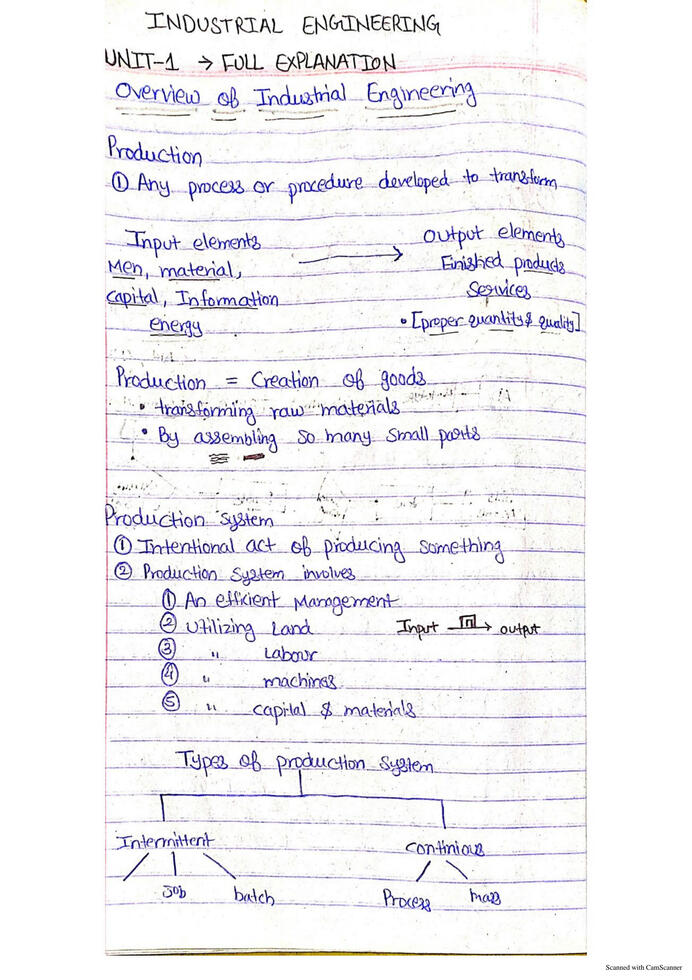 INDUSTRIAL ENGINEERING
UNIT-1 → FULL EXPLANATION
Overview of Industrial Engineering
Production
① Any process or procedure developed to transform
Input elements → Output elements
Men, material, Finished products
capital, Information Services
energy • [proper quantity & quality]
Production = Creation of goods
• transforming raw materials
• By assembling so many small parts
Production system
① Intentional act of producing something
② Production system involves
① An efficient Management
② Utilizing Land Input → output
③ " Labour
④ " machines
⑤ " capital & materials
Types of production system
Intermittent continious
Job batch Process mass
Scanned with CamScanner